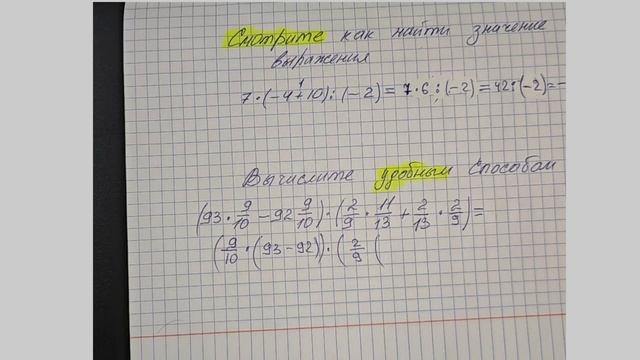 Смотрите как найти значение
выражения
7 · (-4 + 10) : (-2) = 7 · 6 : (-2) = 42 : (-2) = -
Вычислите удобным способом
(93 · 9/10 - 92 9/10) · (2/9 · 11/13 + 2/13 · 2/9) =
(9/10 · (93 - 92)) · (2/9 (